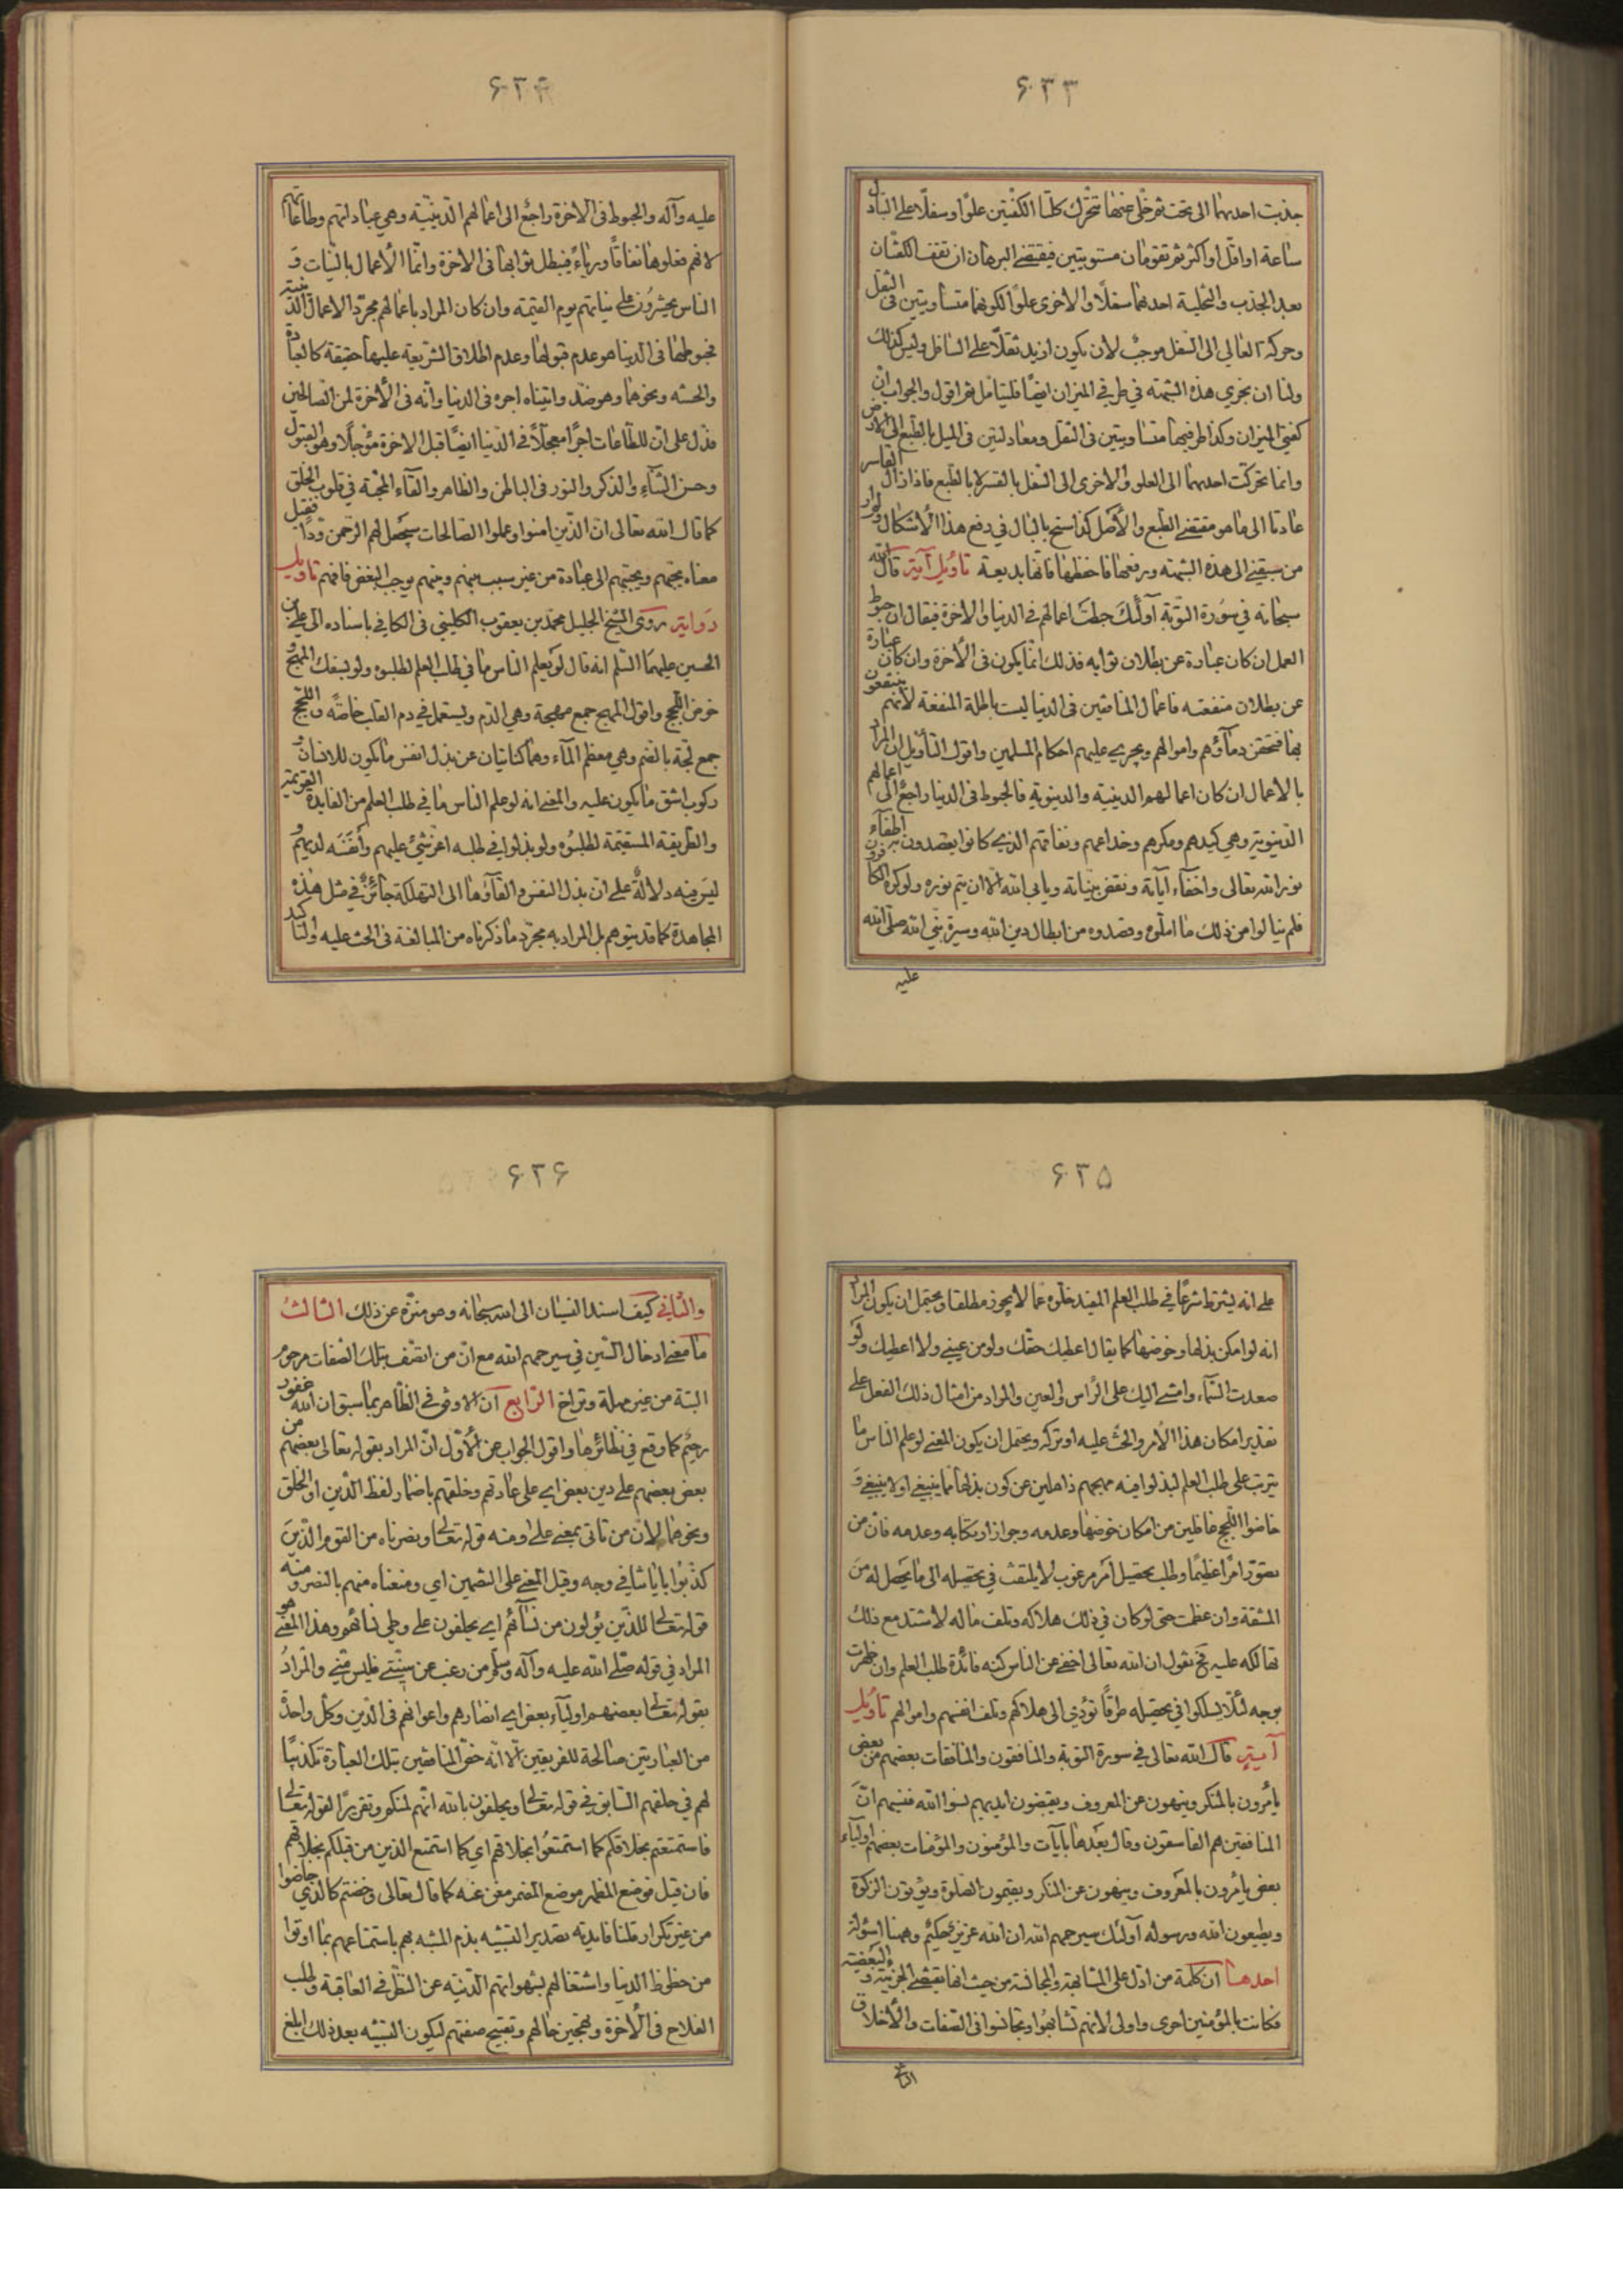 ۶۳۳
جذبت احدیهما الی تحت ثم خلی عنها تتحرک کلتا الکفتین علوا وسفلا علی التبادل
ساعة او اقل او اکثر ثم تقومان مستویتین فیقتضی البرهان ان تقف الکفتان
بعد الجذب والتخلیة احدیهما سفلا والاخری علوا لکونهما متساویتین فی الثقل
وحرکة العالی الی السفل موجب لان یکون ازید ثقلا علی السافل ولیس کذلک
ولنا ان نجری هذه الشبهة فی طرفی المیزان ایضا فلیتامل ثم اقول والجواب ان
کفتی المیزان وکذا طرفیها متساویتین فی الثقل ومعادلتین فی المیل بالطبع الی الارض
وانما تحرکت احدیهما الی العلو والاخری الی السفل بالقسر لا بالطبع فاذا زال القاسر
عادتا الی ما هو مقتضی الطبع والاصل کذا سنح بالبال فی دفع هذا الاشکال ولم ار
من سبقنی الی هذه الشبهة ورفعها فاحفظها فانها بدیعة تاویل آیة قال الله
سبحانه فی سورة التوبة اولئک حبطت اعمالهم فی الدنیا والاخرة فیقال ان حبوط
العمل ان کان عبارة عن بطلان ثوابه فذلک انما یکون فی الاخرة وان کان عبارة
عن بطلان منفعته فاعمال المنافقین فی الدنیا لیست باطلة المنفعة لانهم ینتفعون
بها فتحقن دماؤهم واموالهم ویجری علیهم احکام المسلمین واقول التاویل ان المراد
بالاعمال ان کان اعمالهم الدینیة والدنیویة فالحبوط فی الدنیا راجع الی اعمالهم
الدنیویة وهی کیدهم ومکرهم وخداعهم ونفاقهم الذی کانوا یقصدون به اطفاء
نور الله تعالی واخفاء آیاته ونقض بیناته ویابی الله الا ان یتم نوره ولو کره الکافرون
فلم ینالوا من ذلک ما املوه وقصدوه من ابطال دین الله وسیرة نبی الله صلی الله
علیه
۶۳۴
علیه وآله والحبوط فی الاخرة راجع الی اعمالهم الدینیة وهی عباداتهم وطاعاتهم
لانهم فعلوها نفاقا وریاء فیبطل ثوابها فی الاخرة وانما الاعمال بالنیات و
الناس یحشرون علی نیاتهم یوم القیمة وان کان المراد باعمالهم مجرد الاعمال الدینیة
فحبوطها فی الدنیا هو عدم قبولها وعدم اطلاق الشریعة علیها حقیقة کالعبادة
والحسنة ونحوها وهو ضد وآتیناه اجره فی الدنیا وانه فی الاخرة لمن الصالحین
فدل علی ان للطاعات اجرا معجلا فی الدنیا ایضا قبل الاخرة مؤجلا وهو القبول
وحسن الثناء والذکر والنور فی الباطن والظاهر والقاء المحبة فی قلوب الخلق
کما قال الله تعالی ان الذین امنوا وعملوا الصالحات سیجعل لهم الرحمن ودا فقیل
معناه یحبهم ویحببهم الی عباده من غیر سبب بینهم وبینهم یوجب البغض فافهم تاویل
روایة روی الشیخ الجلیل محمد بن یعقوب الکلینی فی الکافی باسناده الی علی بن
الحسین علیهما السلم انه قال لو یعلم الناس ما فی طلب العلم لطلبوه ولو بسفک المهج و
خوض اللجج واقول المهج جمع مهجة وهی الدم ویستعمل فی دم القلب خاصة واللجج
جمع لجة بالضم وهی معظم الماء وهما کنایتان عن بذل انفس ما یکون للانسان و
رکوب اشق ما یکون علیه والمعنی انه لو علم الناس ما فی طلب العلم من الفایدة القویمة
والطریقة المستقیمة لطلبوه ولو بذلوا فی طلبه اعز شیء علیهم وانفسه لدیهم و
لیس فیه دلالة علی ان بذل النفس والقاؤها الی التهلکة جائز فی مثل هذه
المجاهدة کما قد یتوهم بل المراد به مجرد ما ذکرناه من المبالغة فی الحث علیه والتاکید
۶۳۵
علی انه یشترط شرعا فی طلب العلم المفید خلوه عما لا یجوز مطلقا ویحتمل ان یکون المراد
انه لو امکن بذلها وخوضها کما یقال اعطیک حقک ولو من عینی ولا اعطیک ولو
صعدت السماء وامشی الیک علی الراس والعین والمراد من امثال ذلک الفعل علی
تقدیر امکان هذا الامر والحث علیه او ترکه ویحتمل ان یکون المعنی لو علم الناس ما
یترتب علی طلب العلم لبذلوا فیه مهجهم ذاهلین عن کون بذلها مما ینبغی او لا ینبغی و
خاضوا اللجج غافلین من امکان خوضها وعدمه وجواز ارتکابه وعدمه فان من
تصور امرا عظیما وطلب تحصیل امر مرغوب لا یلتفت فی تحصیله الی ما یحصل له من
المشقة وان عظمت حتی لو کان فی ذلک هلاکه وتلف ماله لاشتد مع ذلک
تهالکه علیه فح نقول ان الله تعالی اخفی عن الناس کنه فائدة طلب العلم وان ظهرت
بوجه لئلا یسلکوا فی تحصیله طرقا تؤدی الی هلاکهم وتلف انفسهم واموالهم تاویل
آیة قال الله تعالی فی سورة التوبة والمنافقون والمنافقات بعضهم من بعض
یأمرون بالمنکر وینهون عن المعروف ویقبضون ایدیهم نسوا الله فنسیهم ان
المنافقین هم الفاسقون وقال بعدها بآیات والمؤمنون والمؤمنات بعضهم اولیاء
بعض یأمرون بالمعروف وینهون عن المنکر ویقیمون الصلوة ویؤتون الزکوة
ویطیعون الله ورسوله اولئک سیرحمهم الله ان الله عزیز حکیم وههنا اسؤلة
احدها ان کلمة من ادل علی المشابهة والمجانسة من حیث انها یقتضی الجزئیة والبعضیة
فکانت بالمؤمنین احری واولی لانهم تشابهوا وتجانسوا فی الصفات والاخلاق
۶۳۶
والثانی کیف اسند النسیان الی الله سبحانه وهو منزه عن ذلک الثالث
ما معنی ادخال السین فی سیرحمهم الله مع ان من اتصف بتلک الصفات مرحوم
البتة من غیر مهلة وتراخ الرابع ان الاوفق فی الظاهر بما سبق ان الله غفور
رحیم کما وقع فی نظائرها واقول الجواب عن الاول ان المراد بقوله تعالی بعضهم من
بعض بعضهم علی دین بعض ای علی عادتهم وخلقهم باضمار لفظ الدین او الخلق
ونحوهما لان من تاتی بمعنی علی ومنه قوله تعالی ونصرناه من القوم الذین
کذبوا بایاتنا فی وجه وقیل المعنی علی التضمین ای ومنعناه منهم بالنصر ومنه
قوله تعالی للذین یؤلون من نسائهم ای یحلفون علی وطی نسائهم وهذا المعنی هو
المراد فی قوله صلی الله علیه وآله وسلم من رغب عن سنتی فلیس منی والمراد
بقوله تعالی بعضهم اولیاء بعض ای انصارهم واعوانهم فی الدین وکل واحدة
من العبارتین صالحة للفریقین الا انه خص المنافقین بتلک العبارة تکذیبا
لهم فی حلفهم السابق فی قوله تعالی ویحلفون بالله انهم لمنکم وتقریرا لقوله تعالی
فاستمتعتم بخلاقکم کما استمتعوا بخلاقهم ای کما استمتع الذین من قبلکم بخلاقهم
فان قیل فوضع المظهر موضع المضمر مغن عنه کما قال تعالی وخضتم کالذی خاضوا
من غیر تکرار قلنا فایدته تصدیر التشبیه بذم المشبه بهم باستمتاعهم بما اوتوا
من حظوظ الدنیا واشتغالهم بشهواتهم الدنیة عن النظر فی العاقبة وطلب
الفلاح فی الاخرة وتهجین حالهم وتقبیح صفتهم لیکون التشبیه بعد ذلک ابلغ